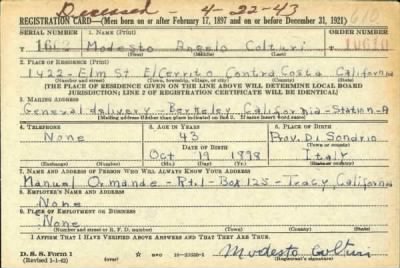 Deceased - 4-22-43
REGISTRATION CARD—(Men born on or after February 17, 1897 and on or before December 31, 1921)
SERIAL NUMBER 1. NAME (Print) ORDER NUMBER
Modesto Angelo Colturi
(First) (Middle) (Last)
2. PLACE OF RESIDENCE (Print)
1422 - Elm St El Cerrito Contra Costa California
(Number and street) (Town, township, village, or city) (County) (State)
[THE PLACE OF RESIDENCE GIVEN ON THE LINE ABOVE WILL DETERMINE LOCAL BOARD
JURISDICTION; LINE 2 OF REGISTRATION CERTIFICATE WILL BE IDENTICAL]
3. MAILING ADDRESS
General delivery - Berkeley California - Station - A
[Mailing address if other than place indicated on line 2. If same insert word same]
4. TELEPHONE 5. AGE IN YEARS 6. PLACE OF BIRTH
None 43 Prov. Di Sondrio
DATE OF BIRTH (Town or county)
Oct 19 1898 Italy
(Exchange) (Number) (Mo.) (Day) (Yr.) (State or country)
7. NAME AND ADDRESS OF PERSON WHO WILL ALWAYS KNOW YOUR ADDRESS
Manual Ormande - Rt. 1 - Box 125 - Tracy, California
8. EMPLOYER'S NAME AND ADDRESS
None
9. PLACE OF EMPLOYMENT OR BUSINESS
None
(Number and street or R. F. D. number) (Town) (County) (State)
I AFFIRM THAT I HAVE VERIFIED ABOVE ANSWERS AND THAT THEY ARE TRUE.
D. S. S. Form 1
(Revised 1-1-42) Modesto Colturi
(Registrant's signature)